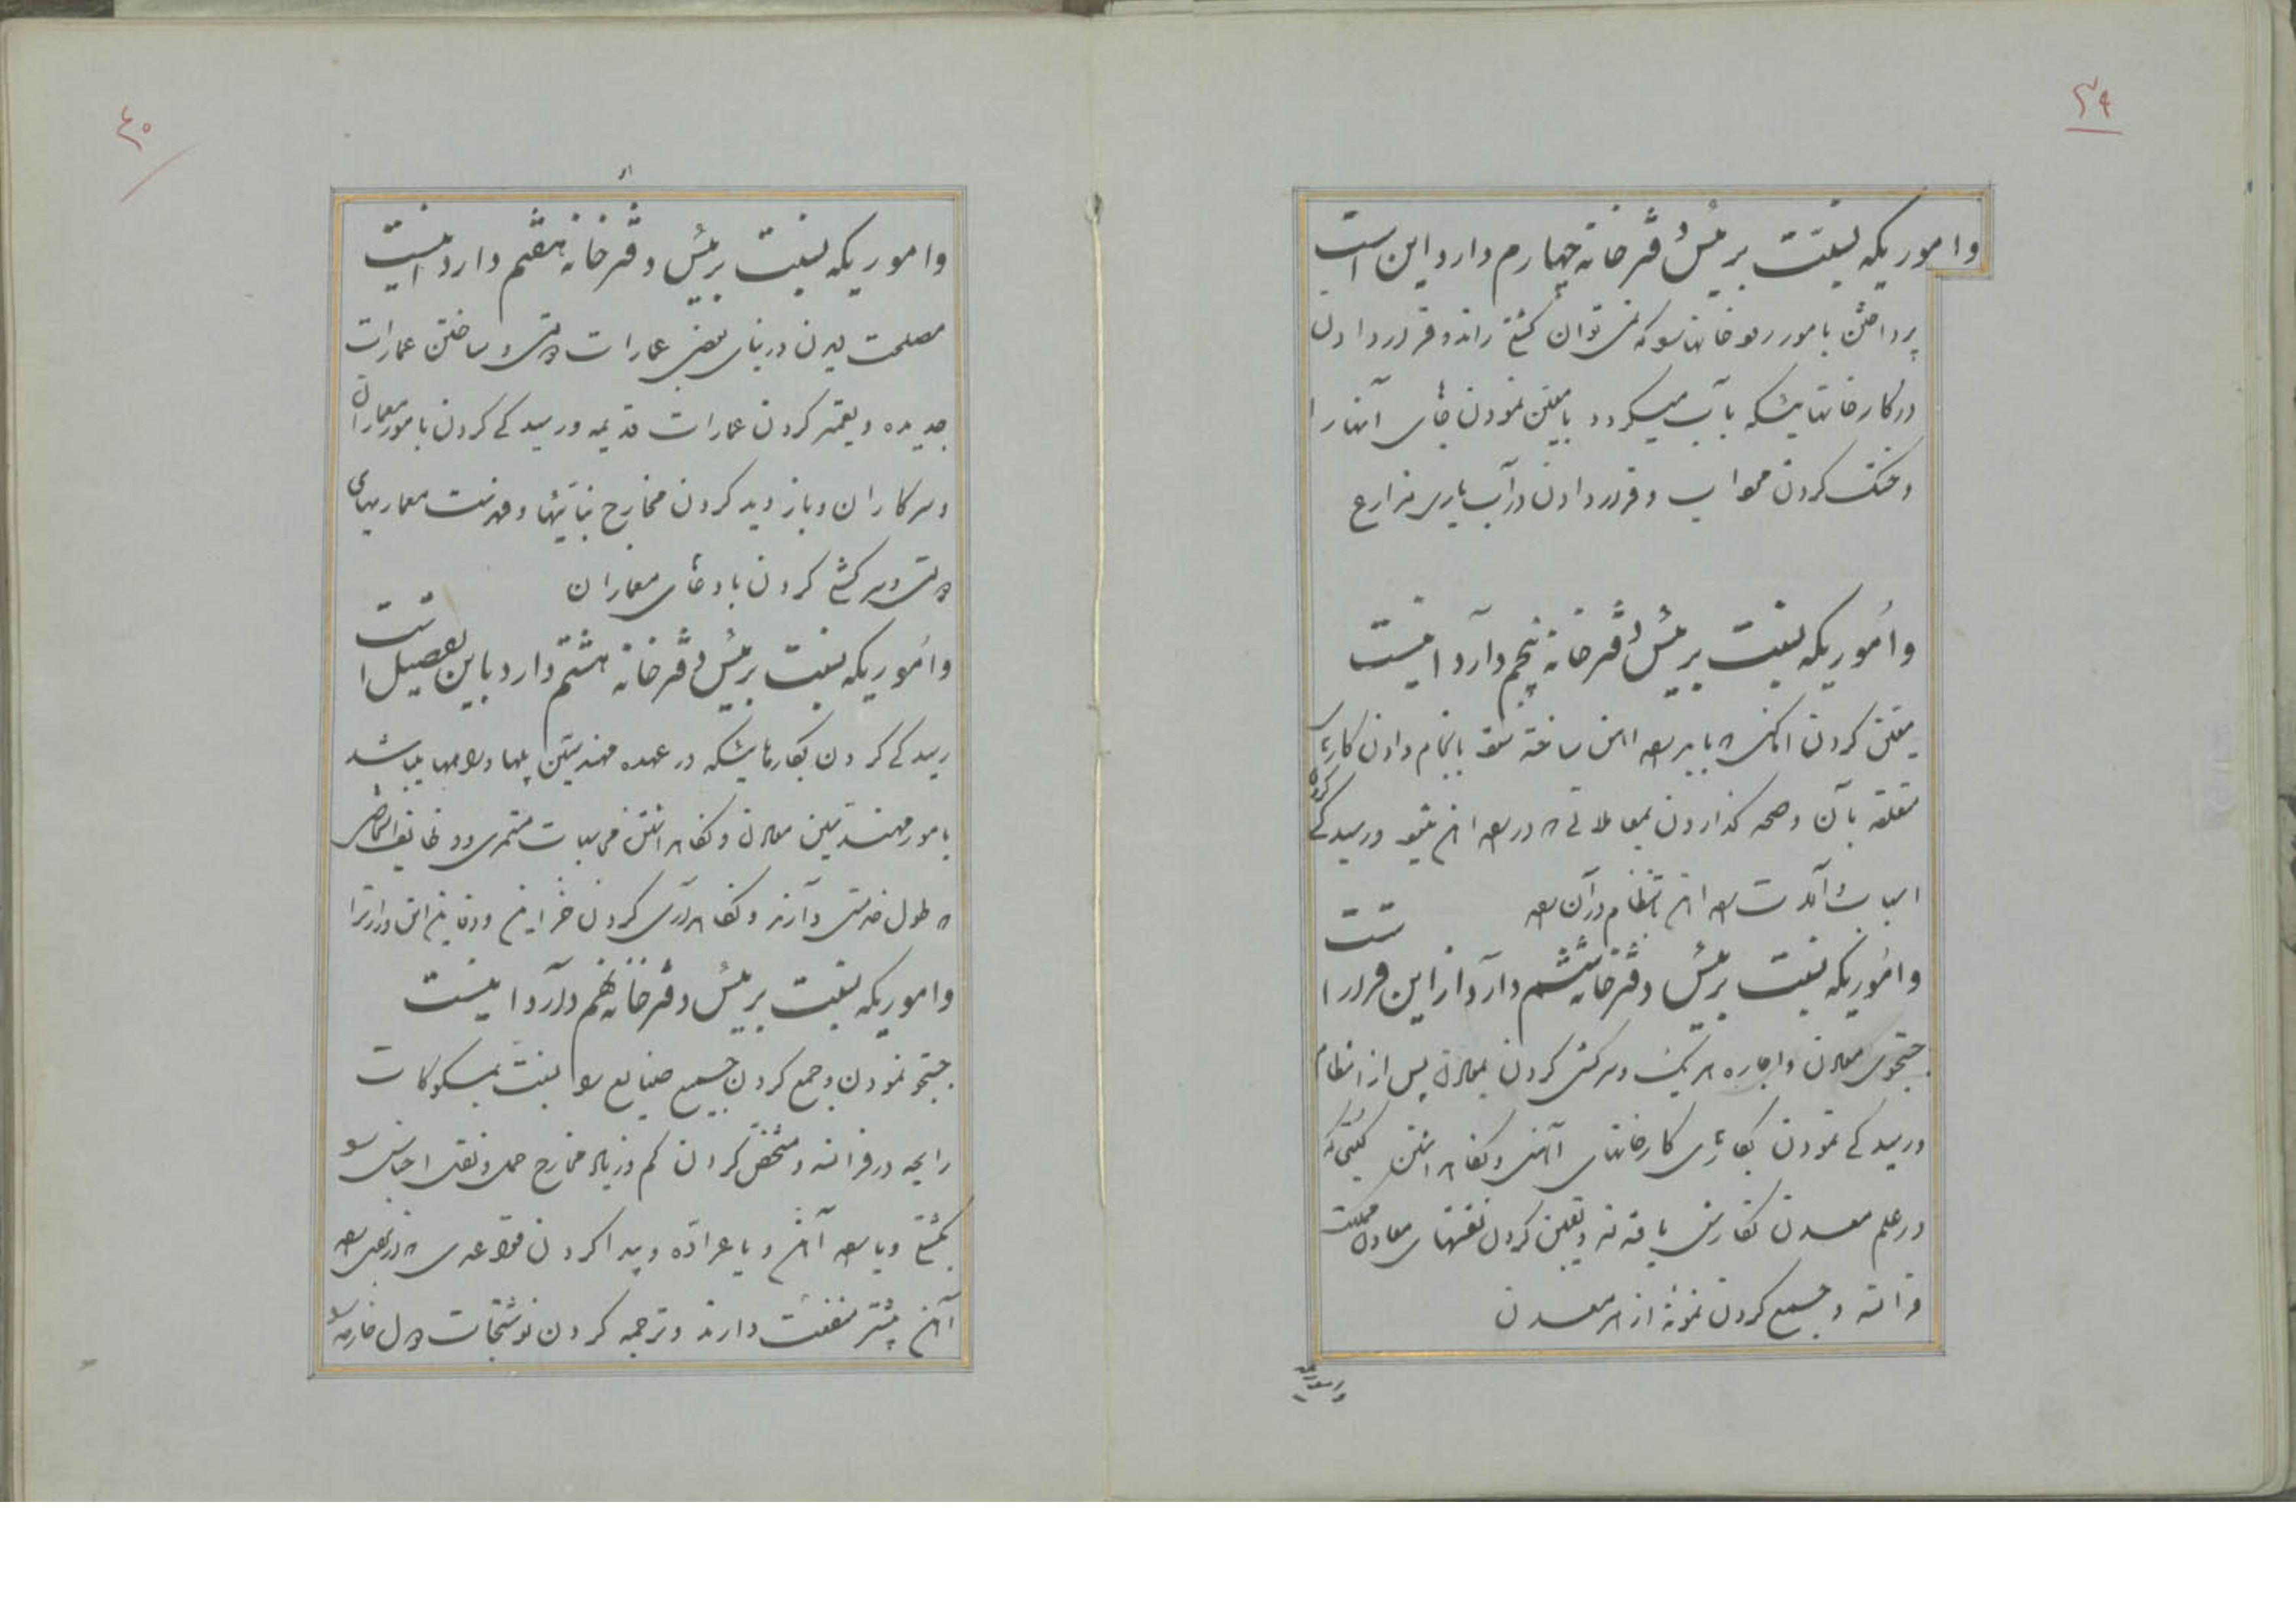 ۳۹
و اموریکه نسبت برئیس دفترخانه چهارم دارد این است
پرداختن بامور رودخانهائیکه نمی توان کشتی راند و قرار دادن
در کارخانهائیکه بآب میگردد با معین نمودن جای آنها را
و خشک کردن مرداب و قرار دادن در آب یاری مزارع
و امُوریکه نسبت برئیس دفترخانه پنجم دارد اینست
معین کردن اینکه باید راه آهن ساخته شود بانجام دادن کارهای
متعلقه بآن و صحه گذاردن بمعاملاتی که در راه آهن میشود و رسیدگی کردن
اسباب و آلات راه آهن با نظام در آن راه
و امُوریکه نسبت برئیس دفترخانه ششم دارد از این قرار است
جستجوی معادن و اجاره هر یک و سرکشی کردن بمعادن پس از انتظام
و رسیدگی نمودن بکارهای کارخانهای آهنی و نگاه داشتن کسانی که
در علم معدن نگارش یافته و معین کردن نقشهای معادن مملکت
فرانسه و جمع کردن نمونهٔ از هر معدن
۴۰
و اموریکه نسبت برئیس دفترخانه هفتم دارد اینست
مصلحت دیدن در بنای بعضی عمارات دولتی و ساختن عمارات
جدیده و تعمیر کردن عمارات قدیمه و رسیدگی کردن بامور معماران
و سرکاران و بازدید کردن مخارج بنائیها و فهرست معماریهای
دولتی و سرکشی کردن بادعای معماران
و امُوریکه نسبت برئیس دفترخانه هشتم دارد باین تفصیل است
رسیدگی کردن بکارهائیکه در عهده مهندسین پلها و راهها میباشد
بامور مهندسین معادن و نگاه داشتن محاسبات مستمری و وظایف اشخاصی
که طول خدمتی دارند و نگاهداری کردن خزاین و دفاین این وزارت را
و اموریکه نسبت برئیس دفترخانه نهم دارد اینست
جستجو نمودن و جمع کردن جمیع صنایع را نسبت بمسکوکات
رایجه در فرانسه و مشخص کردن کم و زیاد مخارج حمل و نقل اجناس را
بکشتی و یا راه آهن و یا عراده و پیدا کردن قواعدی که در بعضی راه
آهن بیشتر منفعت دارند و ترجمه کردن نوشتجات دول خارجه را